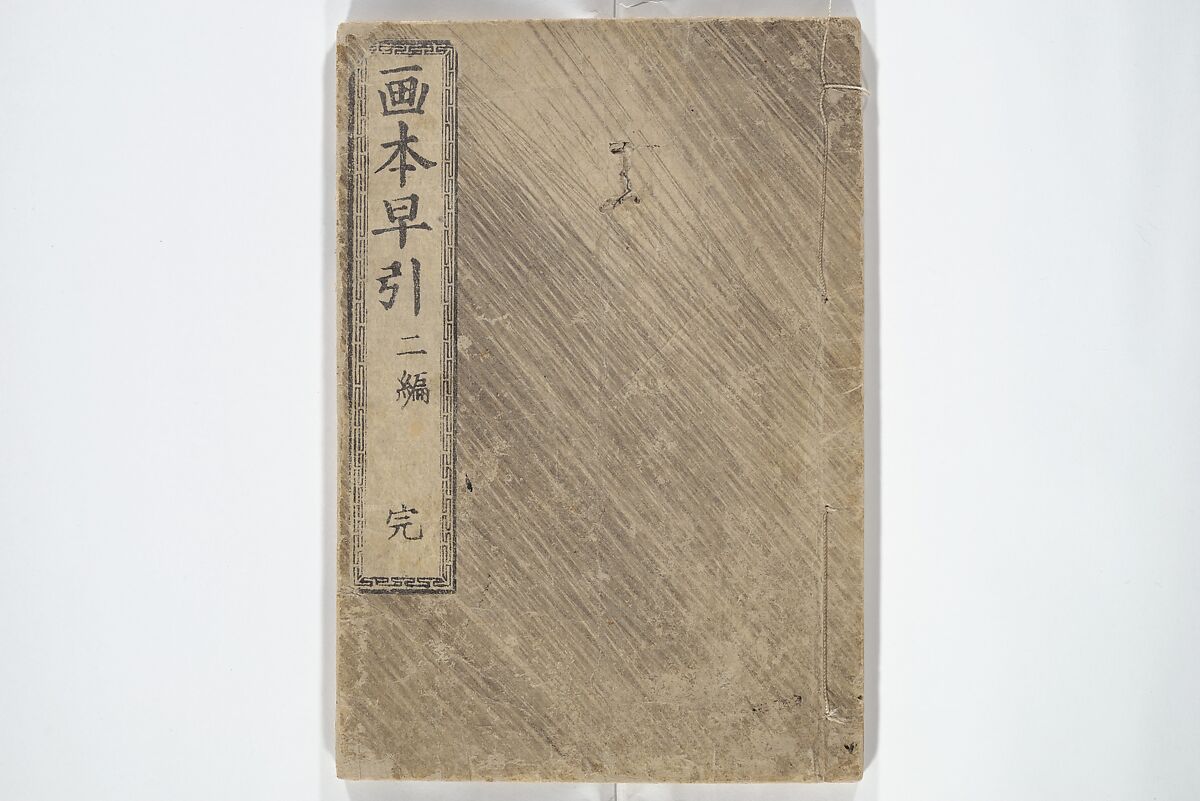 画本早引二編 完